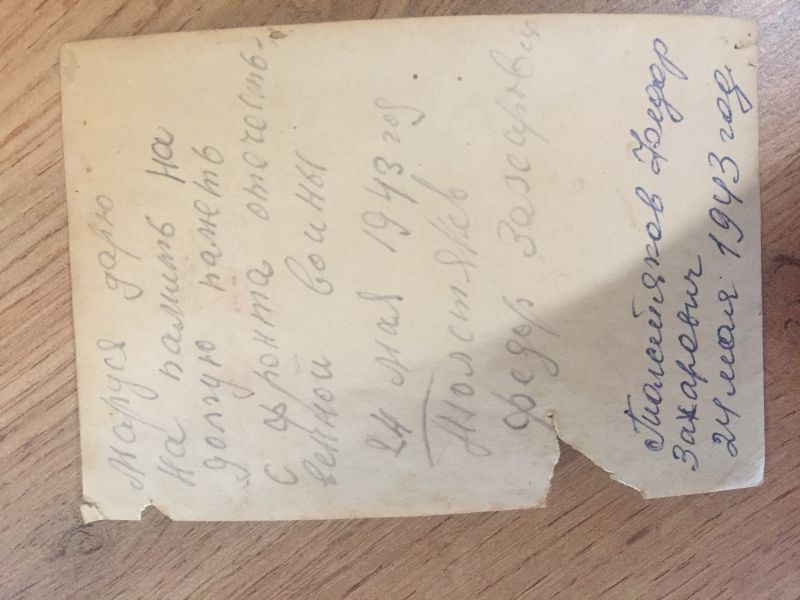 Маруся дарю
на памить на
долгую паметь
с фронта отечеств-
венной воины
24 мая 1943 год
Толстяков
федор Захарович
Толстяков Федор
Захарович
24 мая 1943 год.